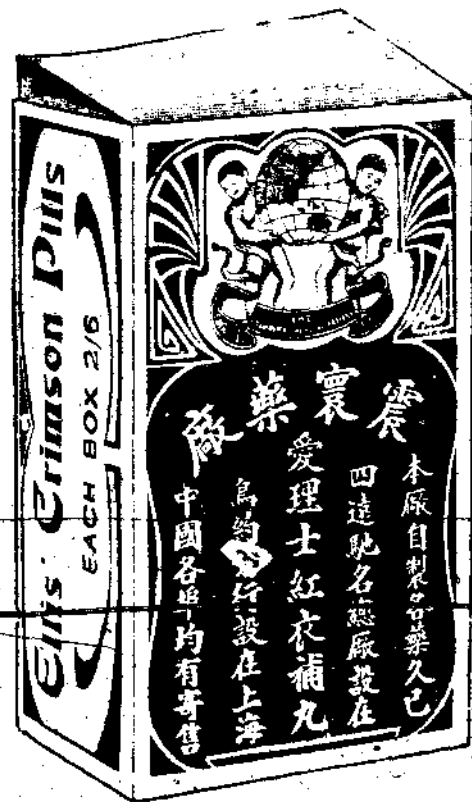 Ellis' Crimson Pills
EACH BOX 2/6
震寰藥廠
本廠自製各藥久已
四遠馳名總廠設在
愛理士紅衣補丸
鳥約行設在上海
中國各埠均有寄售